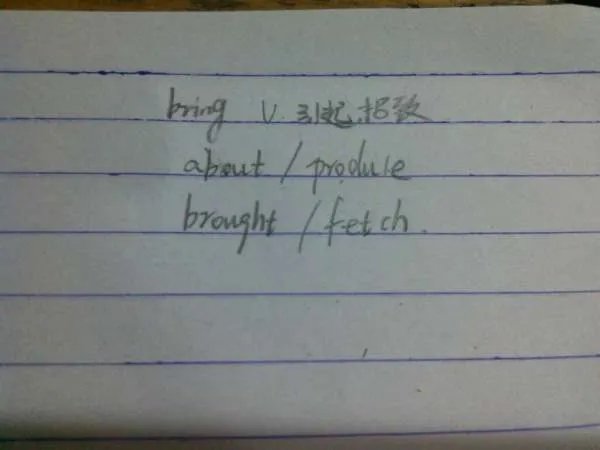 bring v. 引起,招致
about / produce
brought / fetch.